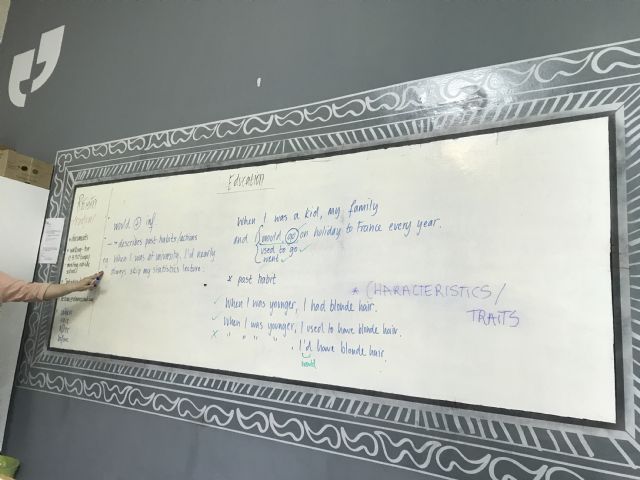 Education
• would ⊕ inf.
→ describes past habits/actions
eg. When I was at university, I'd nearly
always skip my statistics lecture.
When I was a kid, my family
and would go on holiday to France every year.
used to go ✓
went ✓
* past habit
* CHARACTERISTICS/
TRAITS
✓ When I was younger, I had blonde hair.
✓ When I was younger, I used to have blonde hair.
x " " " " , I'd have blonde hair.
would
before